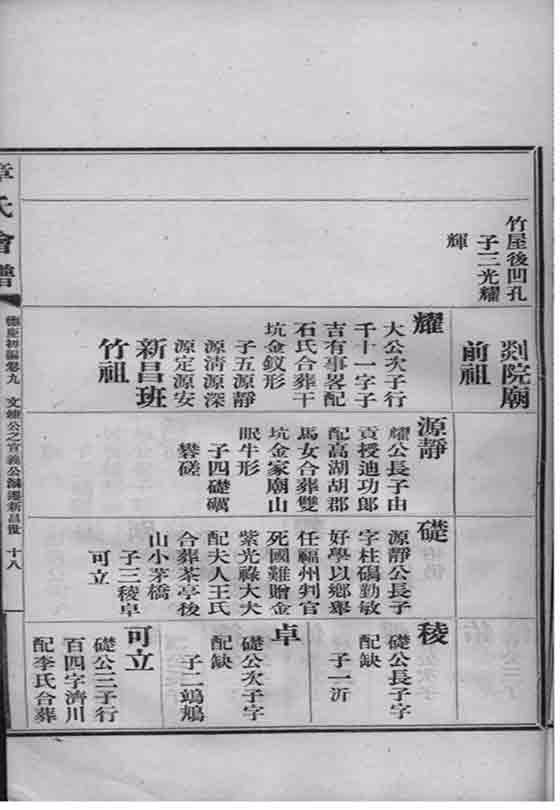 竹屋後凹孔
子三光耀
輝
剡院廟
前祖
耀
大公次子行
千十一字子
吉有事畧配
石氏合葬干
坑金釵形
子五源靜
源清源深
源定源安
新昌班
竹祖
源靜
耀公長子由
貢授迪功郎
配高湖胡郡
馬女合葬雙
坑金家廟山
眠牛形
子四礎礪
礬磋
礎
源靜公長子
字柱碣勤敏
好學以鄉舉
任福州判官
死國難贈金
紫光祿大夫
配夫人王氏
合葬茶亭後
山小茅橋
子三稜卓
可立
稜
礎公長子字
配缺
子一沂
卓
礎公次子字
配缺
子二
可立
礎公三子行
百四字濟川
配李氏合葬
章氏會譜
德慶初編卷九
公之 義公派遷新昌世 十八